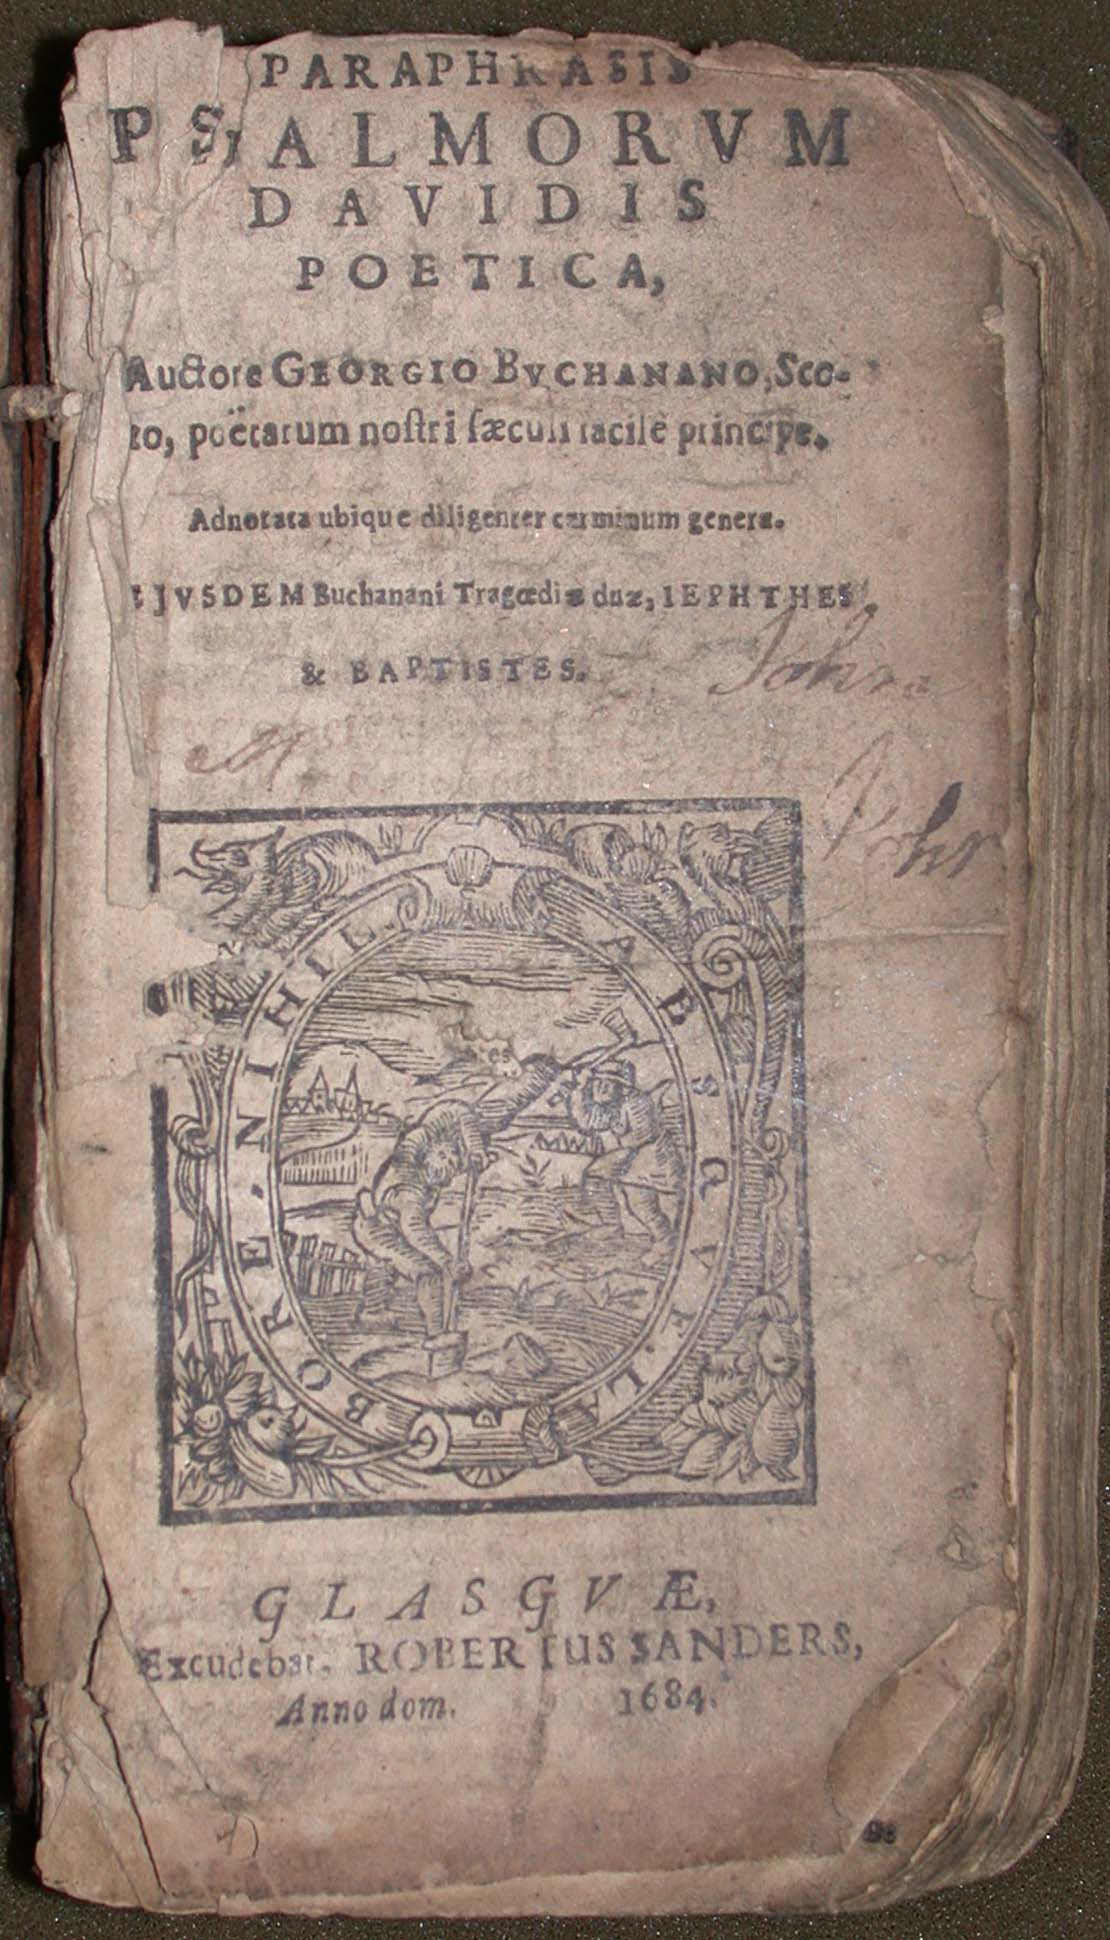 PARAPHRASIS
PSALMORVM
DAVIDIS
POETICA,
Auctore GEORGIO BVCHANANO, Sco-
to, poëtarum nostri sæculi facilè principe.
Adnotata ubique diligenter carminum genera.
EJVSDEM Buchanani Tragœdiæ duæ, IEPHTHES,
& BAPTISTES.
John
M
NIHIL ABSQVE LABORE
GLASGVÆ,
Excudebat, ROBERTUS SANDERS,
Anno dom. 1684.